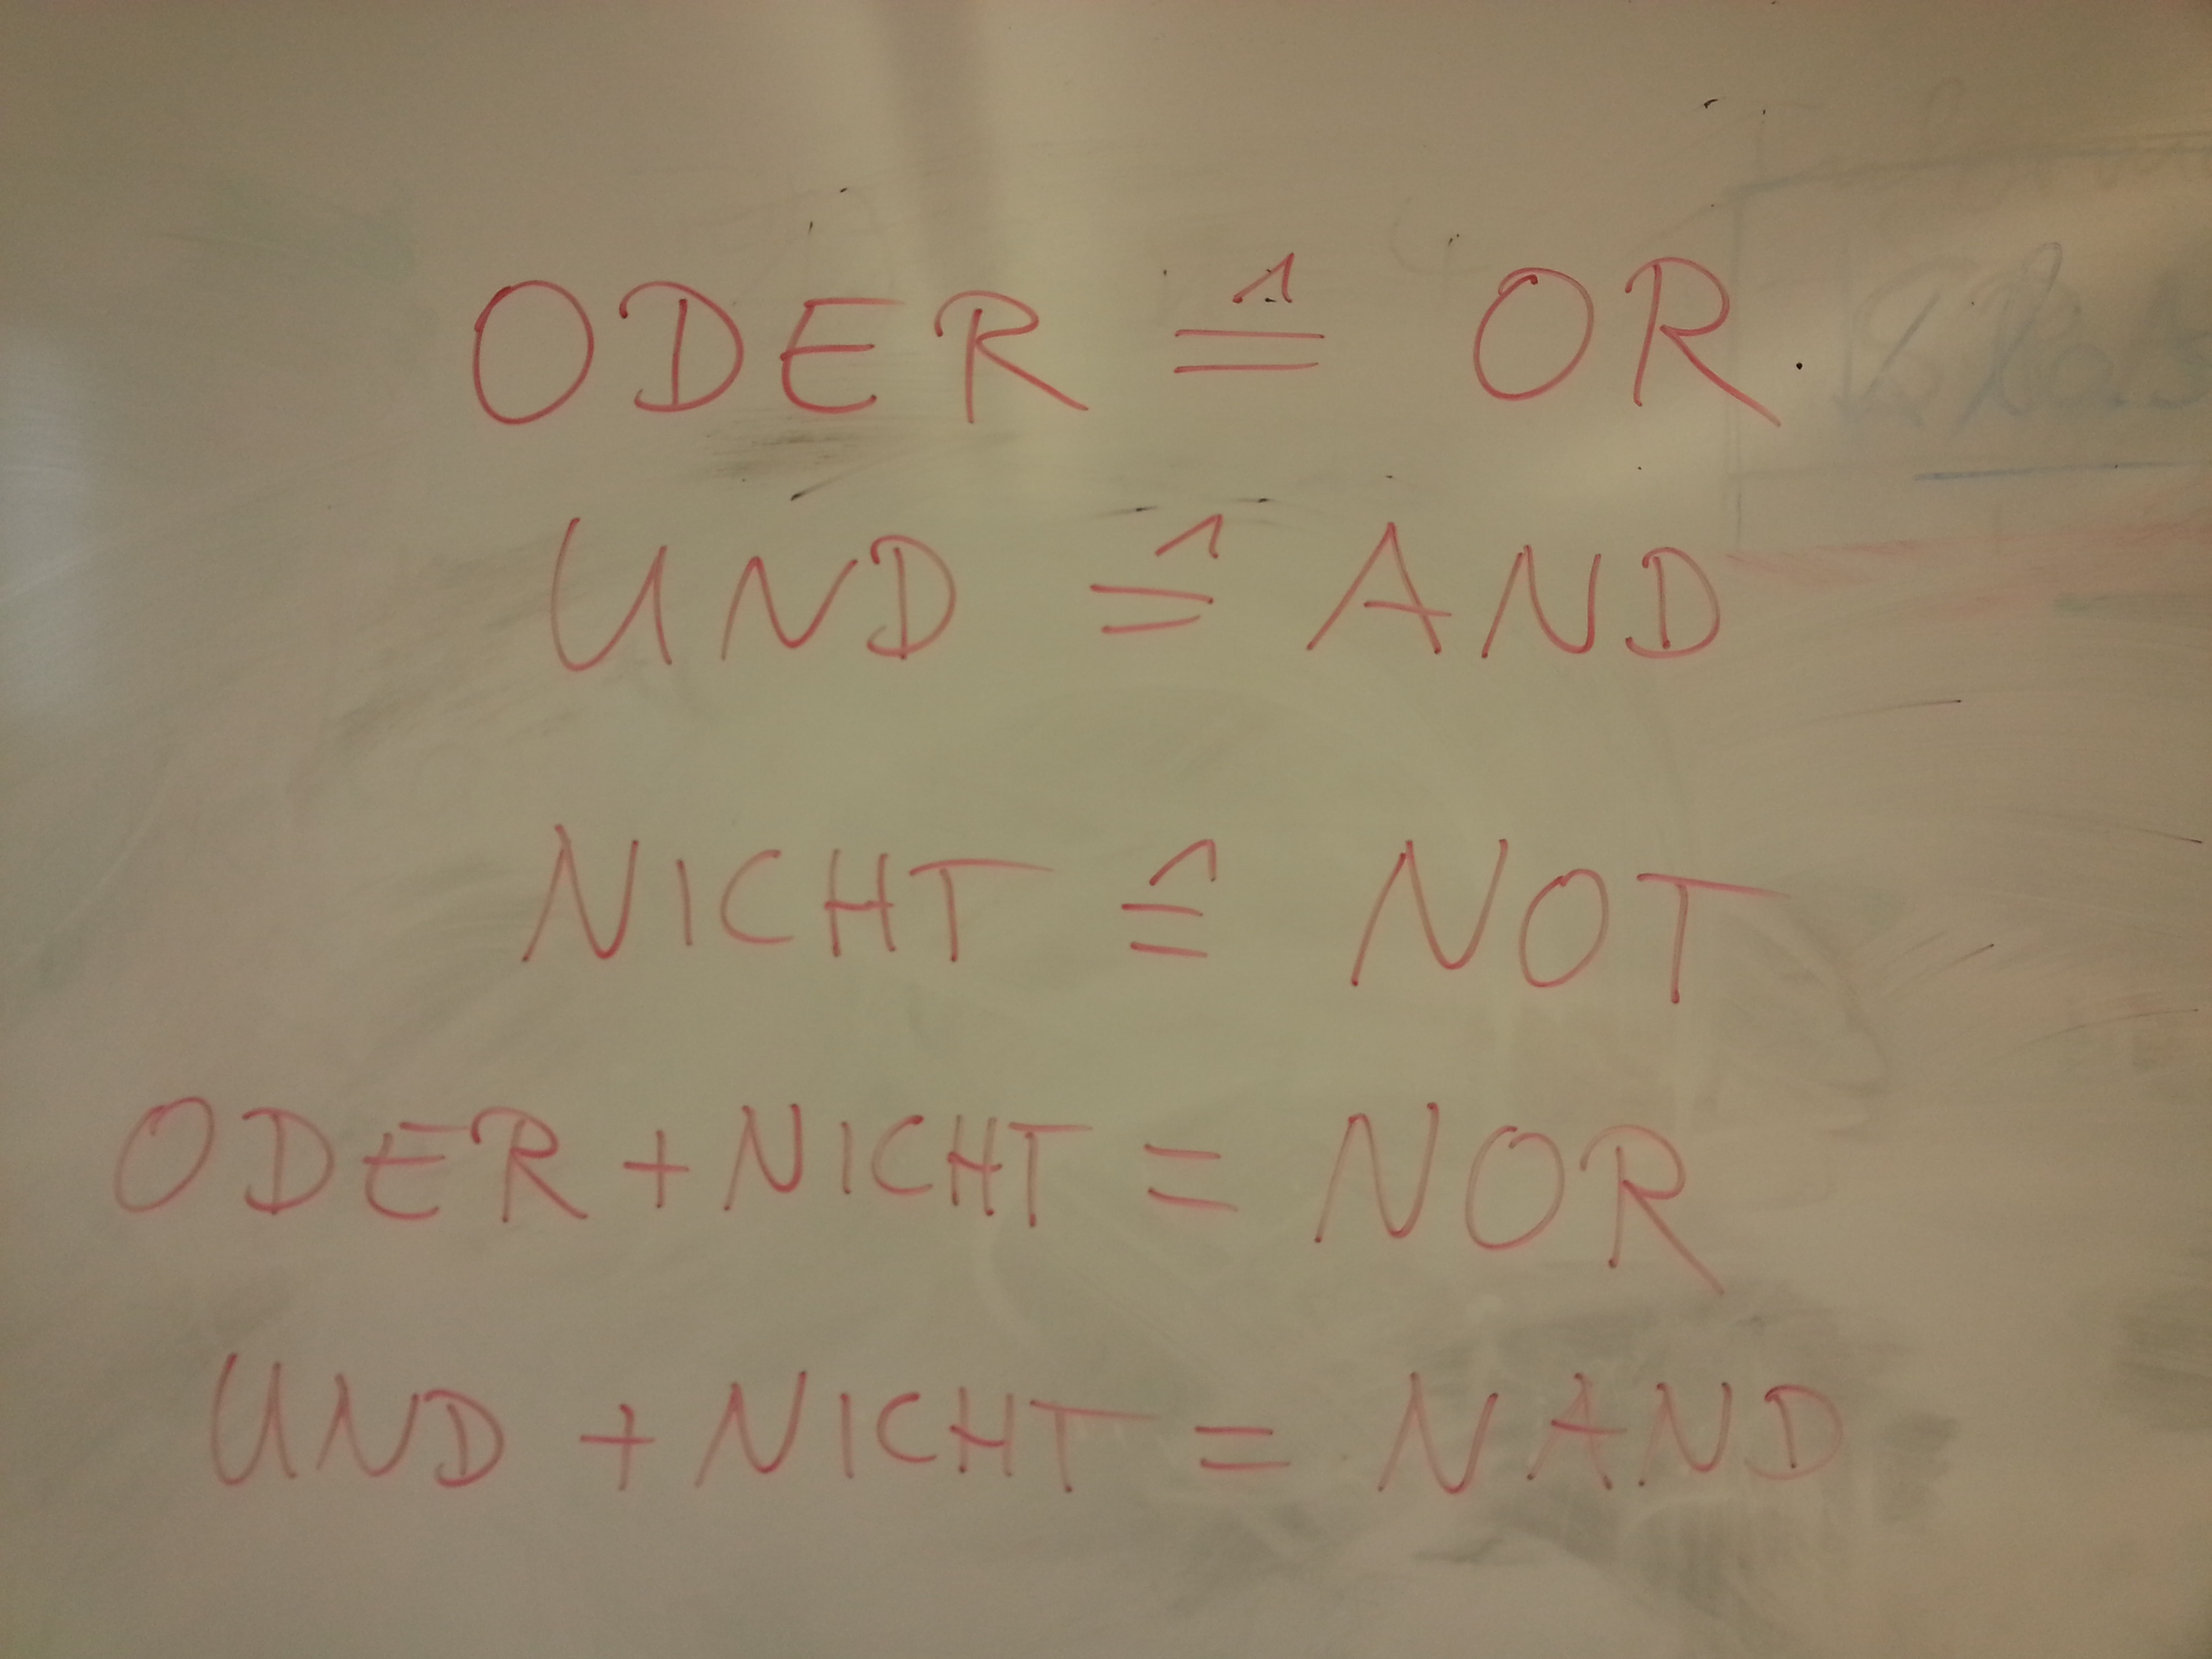 ODER ≙ OR
UND ≙ AND
NICHT ≙ NOT
ODER + NICHT = NOR
UND + NICHT = NAND